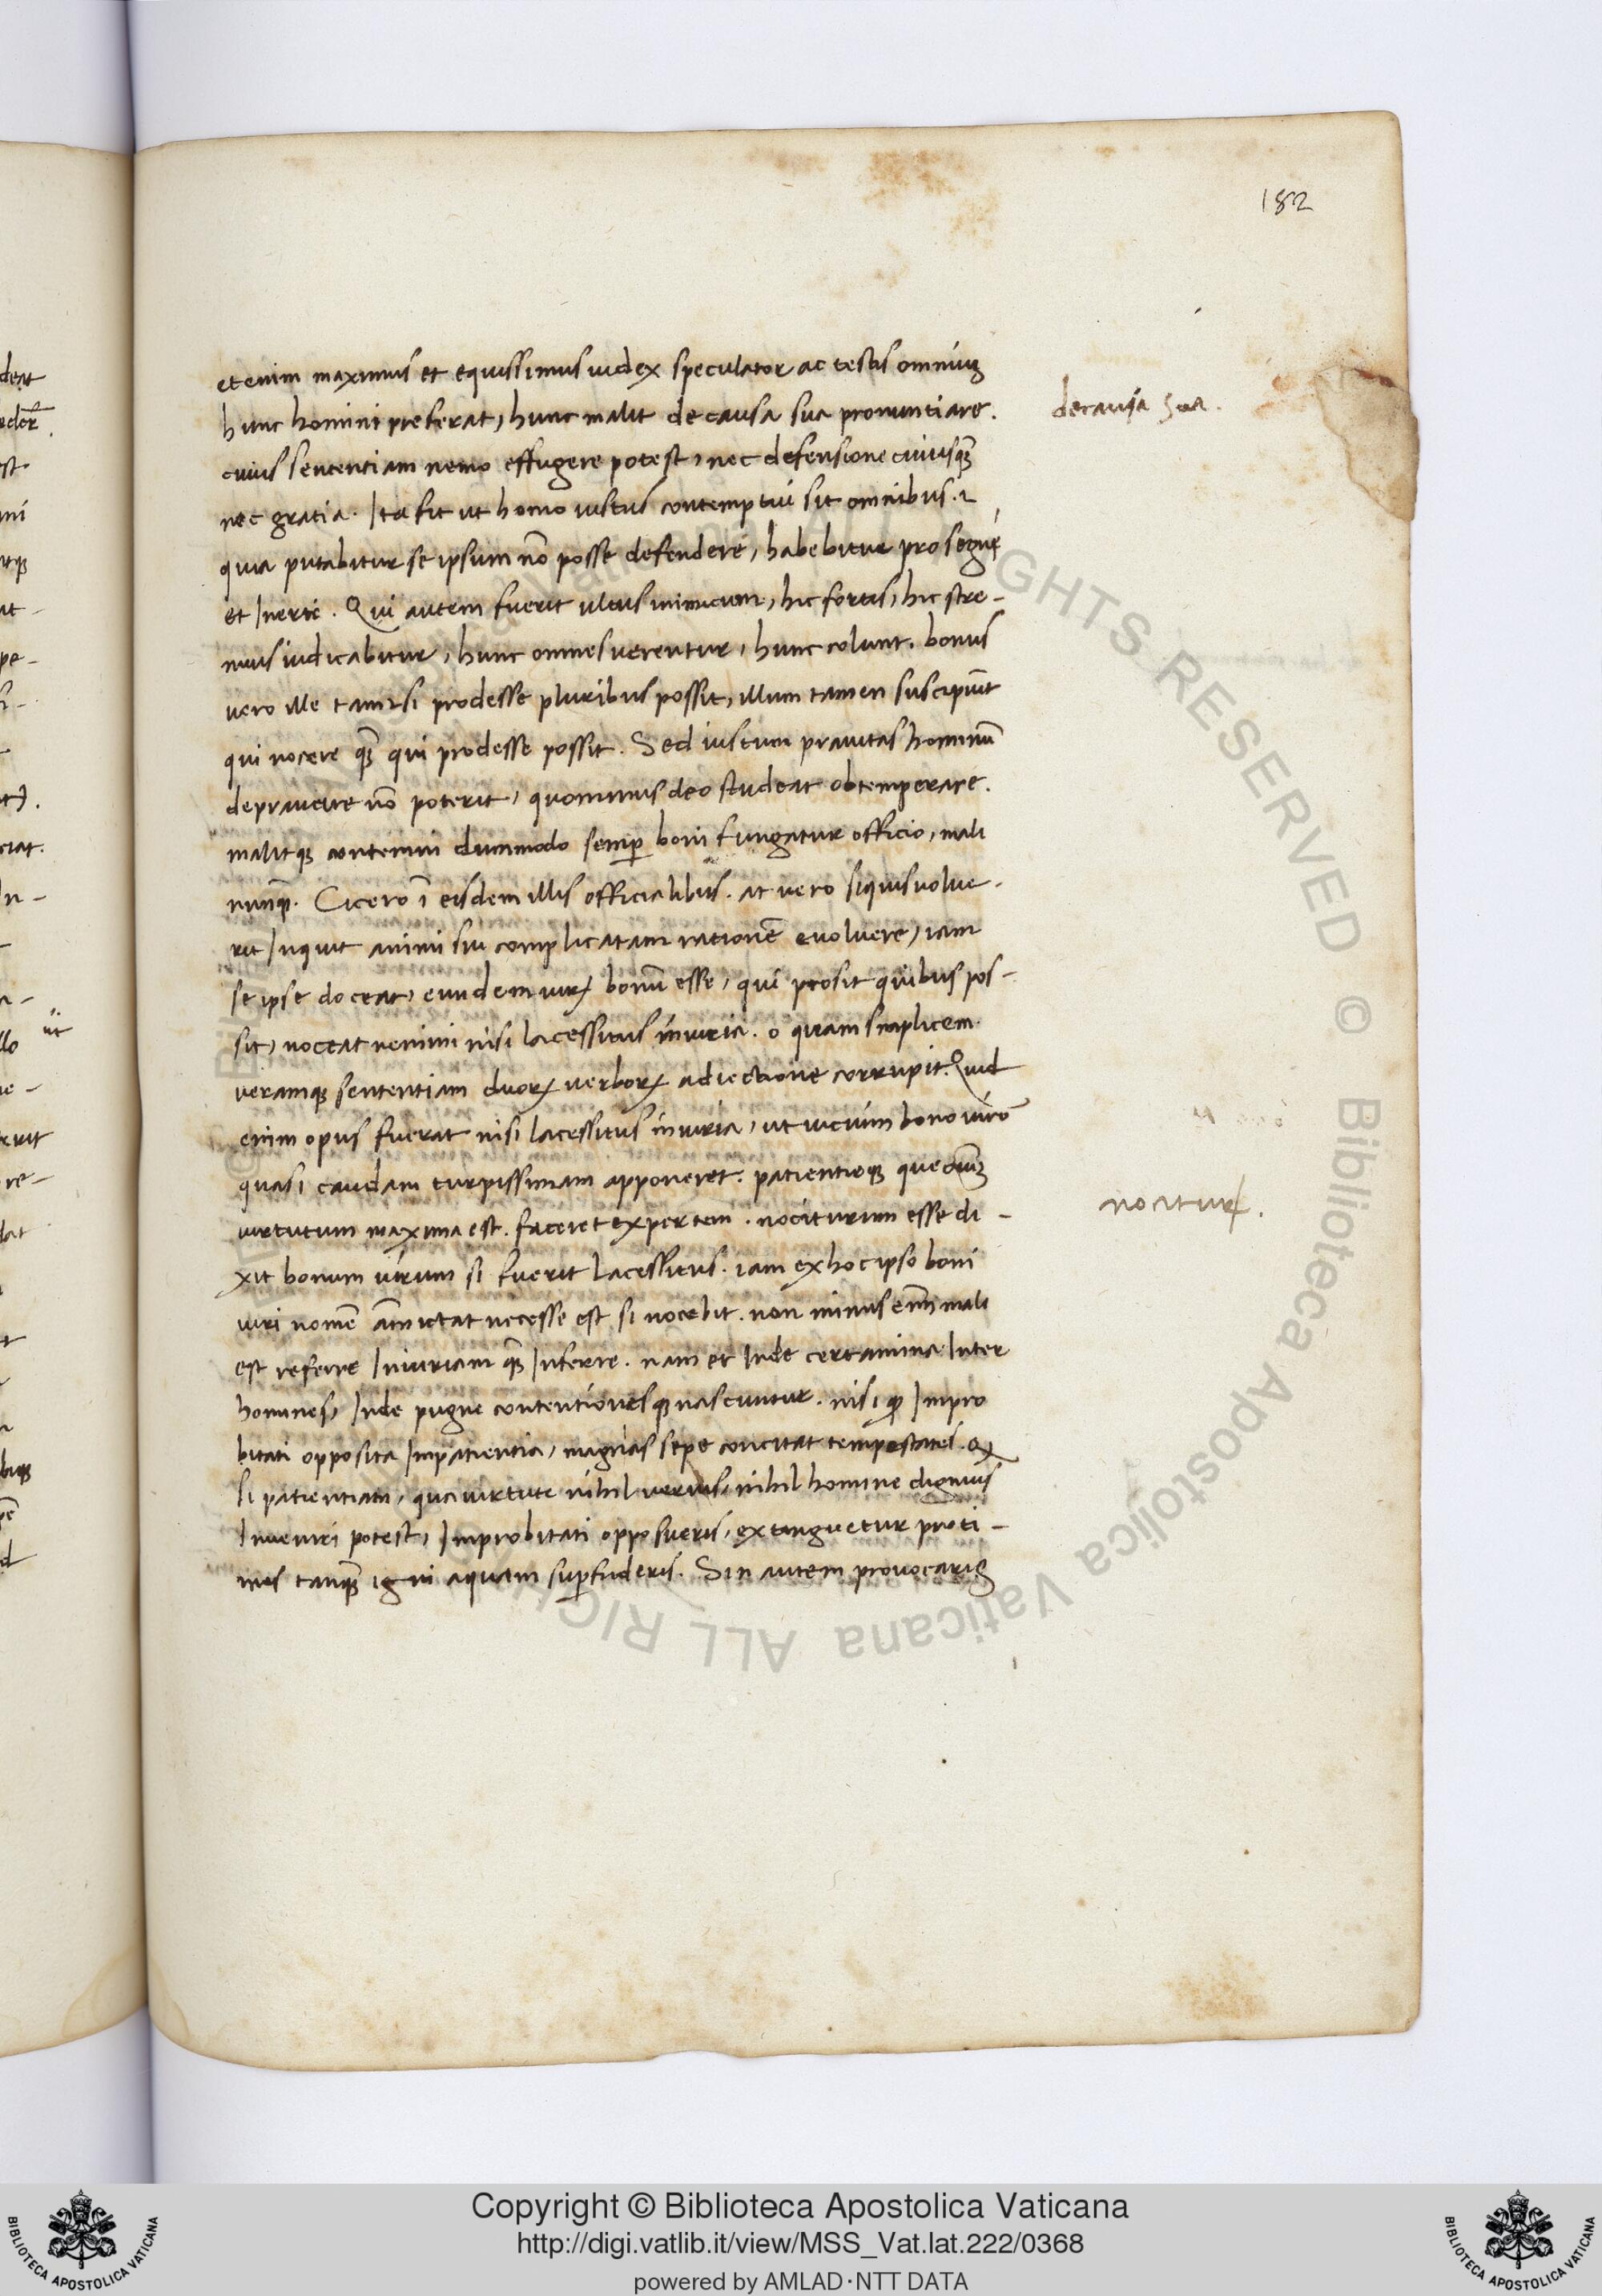 182
et enim maximus et equissimus iudex speculator ac testis omniuȝ
hunc homini preferat, hunc malit de causa sua pronuntiare.
de causa sua.
cuius sententiam nemo effugere potest, nec defensione cuiusqȝ̄
nec gratia. Ita fit ut homo iustus contemptui sit omnibus. ⁊
quia putabitur se ipsum nō posse defendere, habebitur pro segni
et Inerte. Qui autem fuerit ultus inimicum, hic fortis, hic stre-
nuus iudicabitur, hunc omnes uerentur, hunc colunt. bonus
uero ille tam⁊si prodesse pluribus possit, illum tamen suscipiūt
qui nocere qȝ̄ qui prodesse possit. Sed iustum prauitas hominū
deprauare nō poterit, quominus deo studeat obtemperare.
malitqȝ contemni dummodo semp̄ boni fungatur officio, mali
nunqȝ̄. Cicero ī eisdem illis officialibus. at uero siquis uolue-
rit Inquit animi sui complicatam rationē euoluere, iam
se ipse doceat, eundem uirꝝ bonū esse, qui prosit quibus pos-
sit, noceat nemini nisi lacessitus iniuria. o quam simplicem
ueramqȝ sententiam duorꝝ uerborꝝ adiectione corrupit. Quid
enim opus fuerat nisi lacessitus iniuria, ut uicium bono uiro
quasi caudam turpissimam apponeret. patientieqȝ que oīuȝ
uirtutum maxima est. faceret expertem. nociturum esse di-
nociturꝝ.
xit bonum uirum si fuerit lacessitus. iam ex hoc ipso boni
uiri nomē amictat necesse est si nocebit. non minus enī mali
est referre Iniuriam qȝ̄ Inferre. nam et Inde certamina Inter
homines, Inde pugne contentionesqȝ nascuntur. nisi qȝ Impro
bitati opposita Impatientia, magnas sepe concitat tempestates. Qꝝ
si patientiam, qua uirtute nihil uerius, nihil homine dignius
Inueniri potest, Improbitati opposueris, extinguetur proti-
nus tanqȝ̄ igni aquam sup̄fuderis. Sin autem prouocarig
Copyright © Biblioteca Apostolica Vaticana
http://digi.vatlib.it/view/MSS_Vat.lat.222/0368
powered by AMLAD·NTT DATA